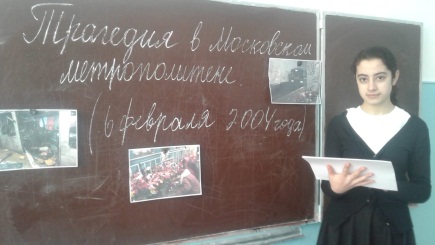 Трагедия в Московском
метрополитене.
(6 февраля 2004 года)